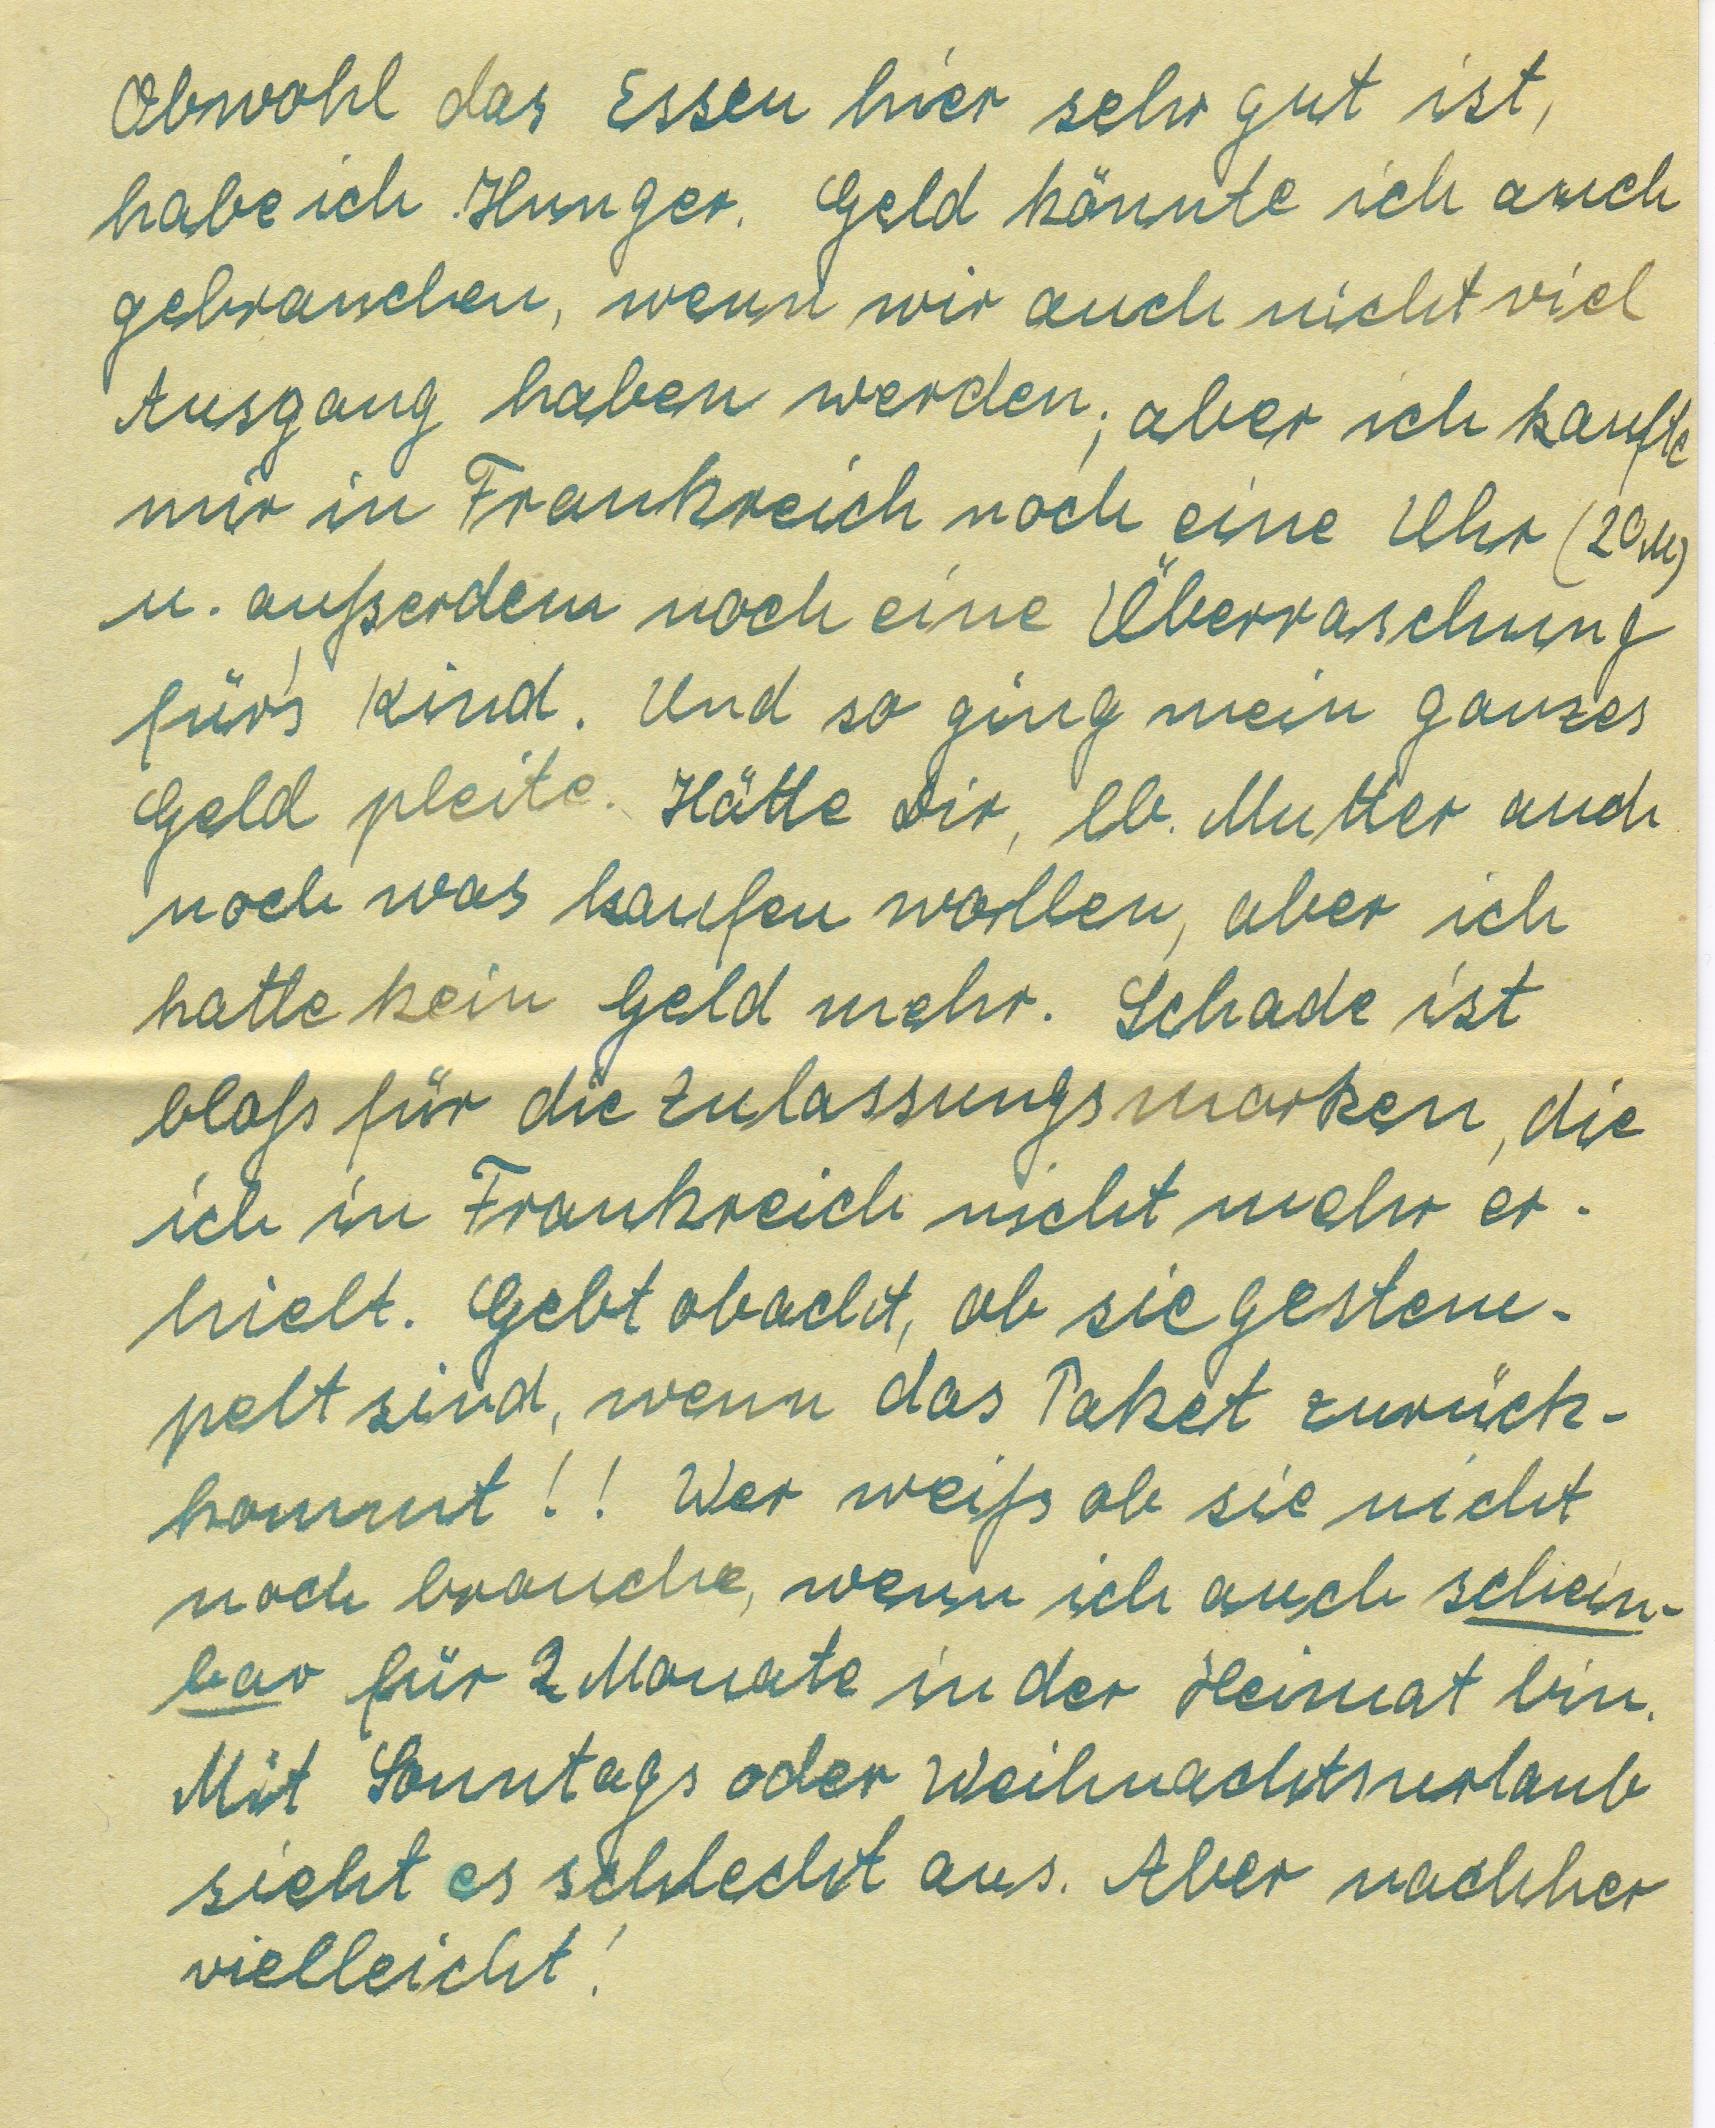 Obwohl das Essen hier sehr gut ist,
habe ich Hunger. Geld könnte ich auch
gebrauchen, wenn wir auch nicht viel
Ausgang haben werden; aber ich kaufte
mir in Frankreich noch eine Uhr (20 M)
u. außerdem noch eine Überraschung
für's Kind. Und so ging mein ganzes
Geld pleite. Hätte Dir, lb. Mutter auch
noch was kaufen wollen, aber ich
hatte kein Geld mehr. Schade ist
bloß für die Zulassungsmarken, die
ich in Frankreich nicht mehr er-
hielt. Gebt obacht, ob sie gestem-
pelt sind, wenn das Paket zurück-
kommt!! Wer weiß ob sie nicht
noch brauche, wenn ich auch schein-
bar für 2 Monate in der Heimat bin.
Mit Sonntags oder Weihnachtsurlaub
sieht es schlecht aus. Aber nachher
vielleicht!